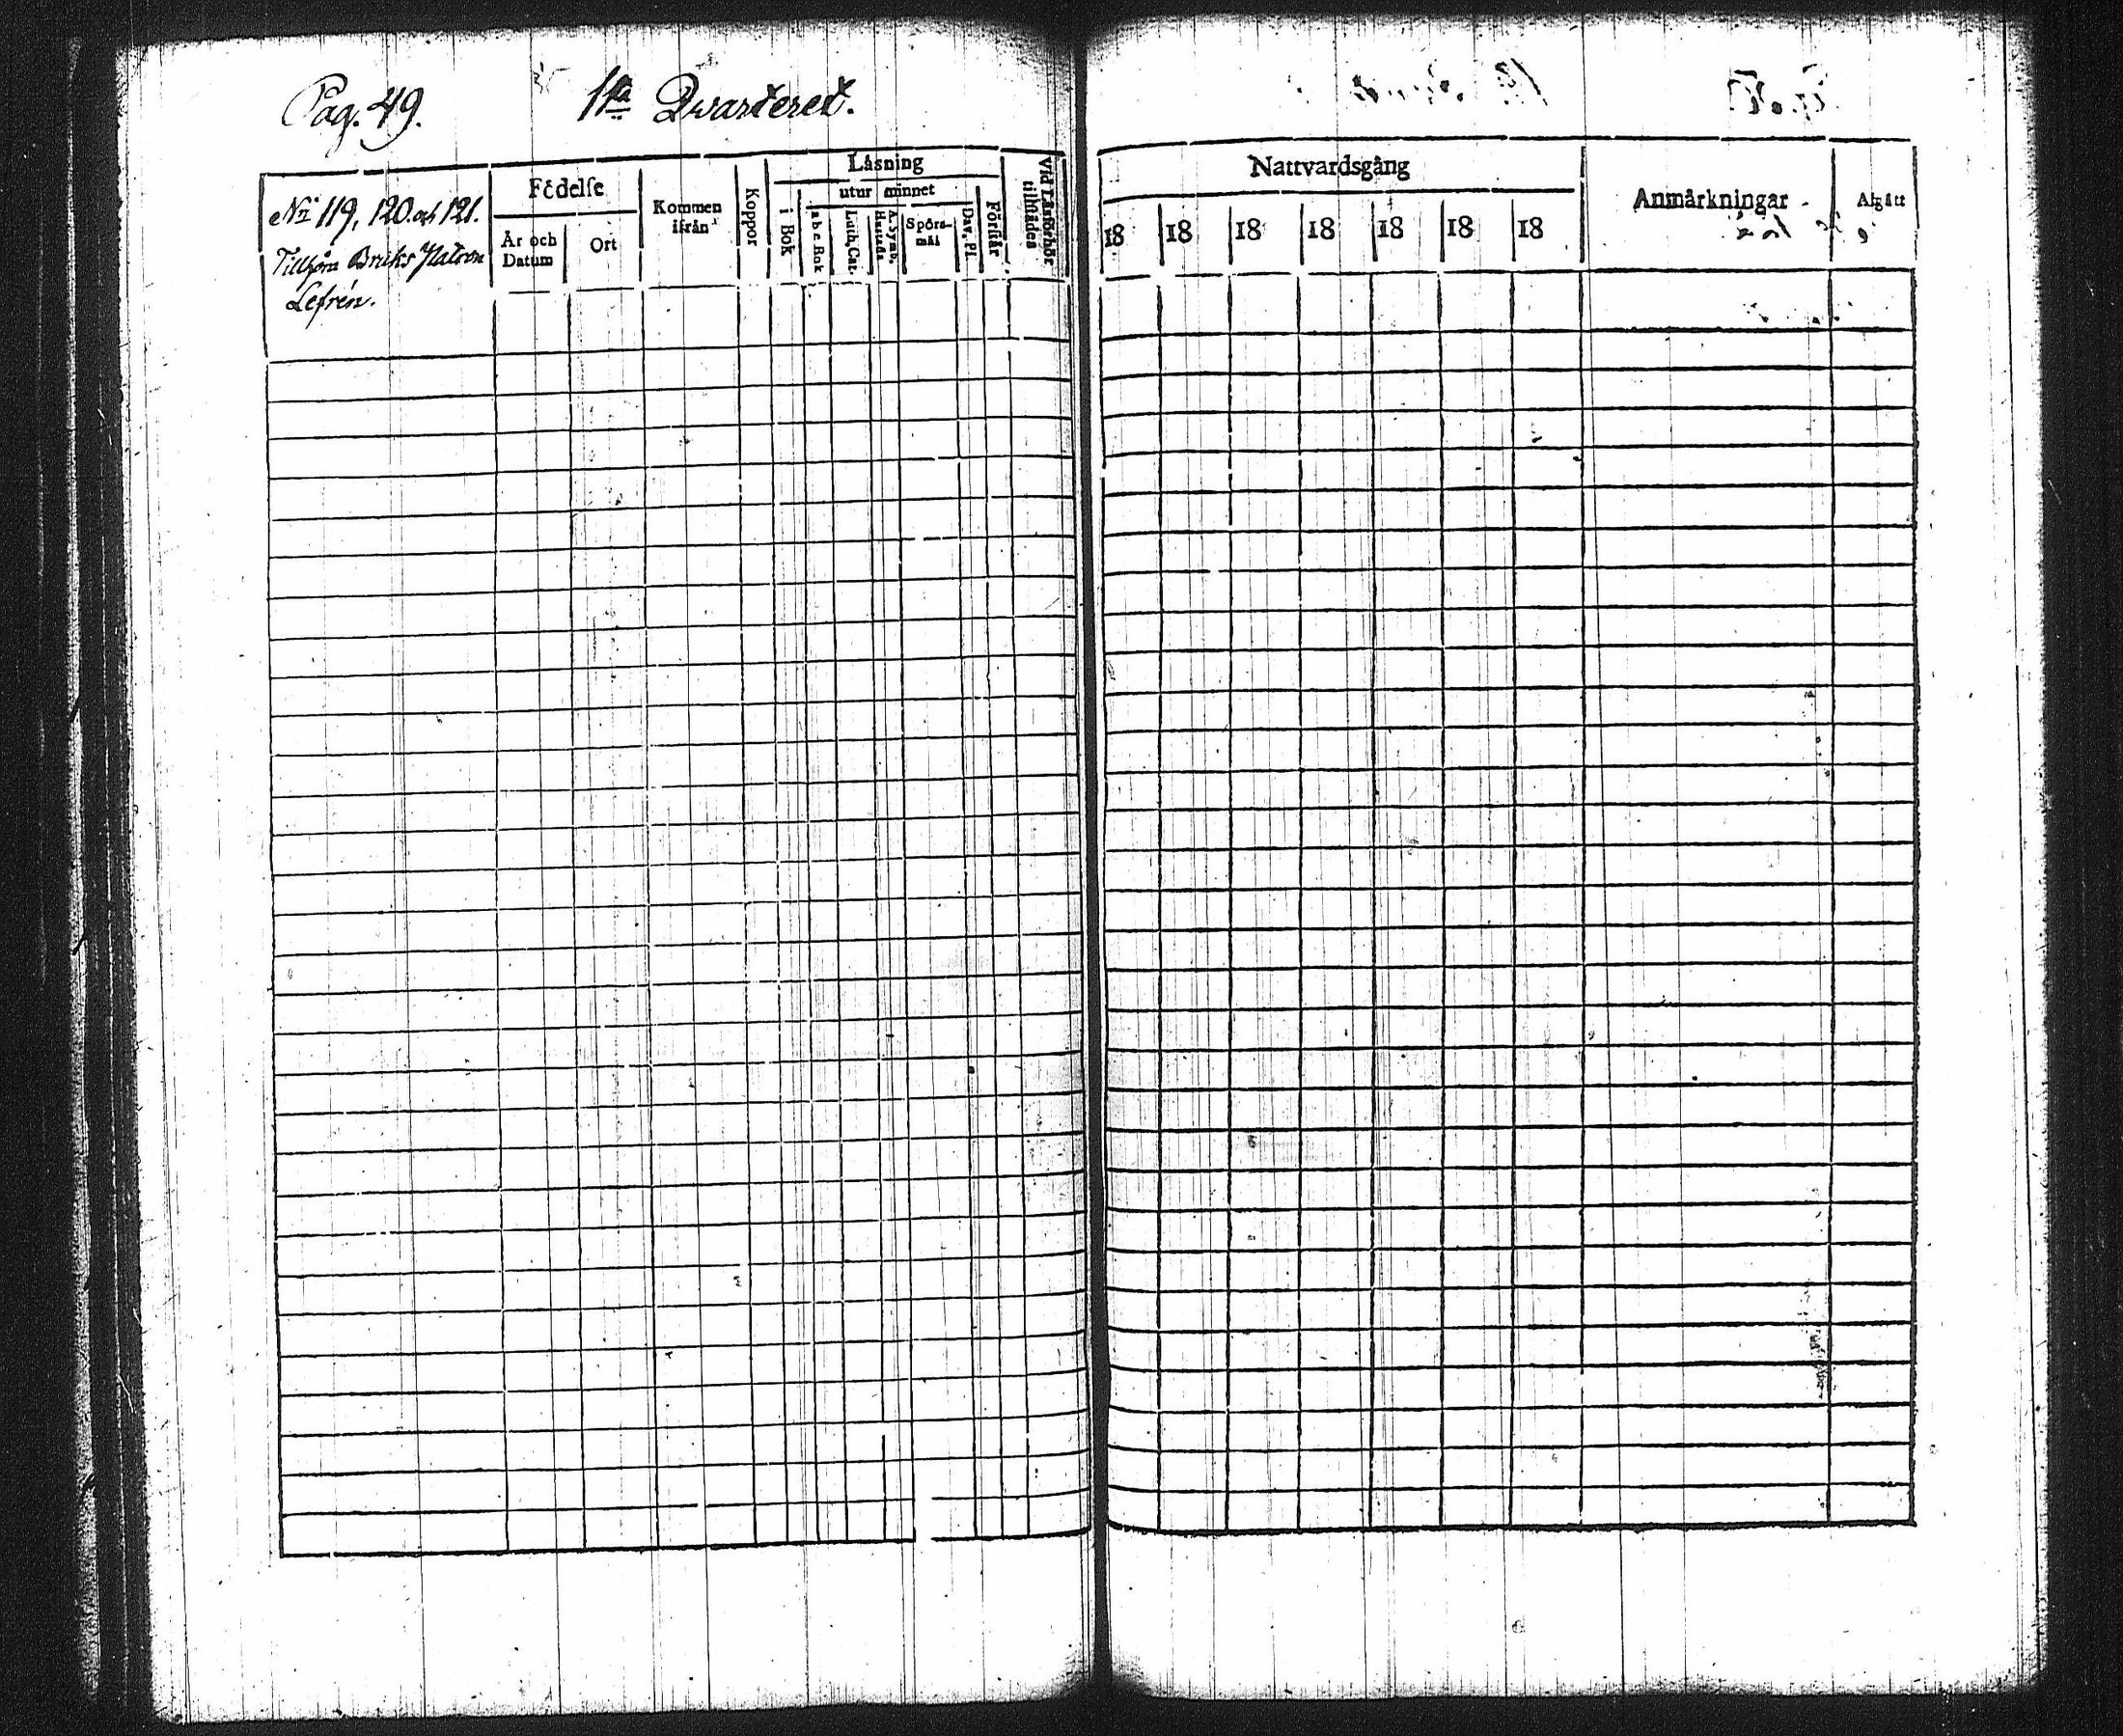 Pag. 49.
1ᵃ Qvarteret.
Nᵒ 119, 120 och 121.
Tillhöra Bruks Patron
Lefrén.
Födelſe
År och
Datum
Ort
Kommen
ifrån
Koppor
Läsning
i Bok
utur minnet
a b c Bok
Luth. Cat.
A. Symb.
Hustafla
Spörs-
mål
Dav. Pſ.
Förſtår
Vid Läsförhör
tillſtädes
Nattvardsgång
18
18
18
18
18
18
18
Anmärkningar
Afgått